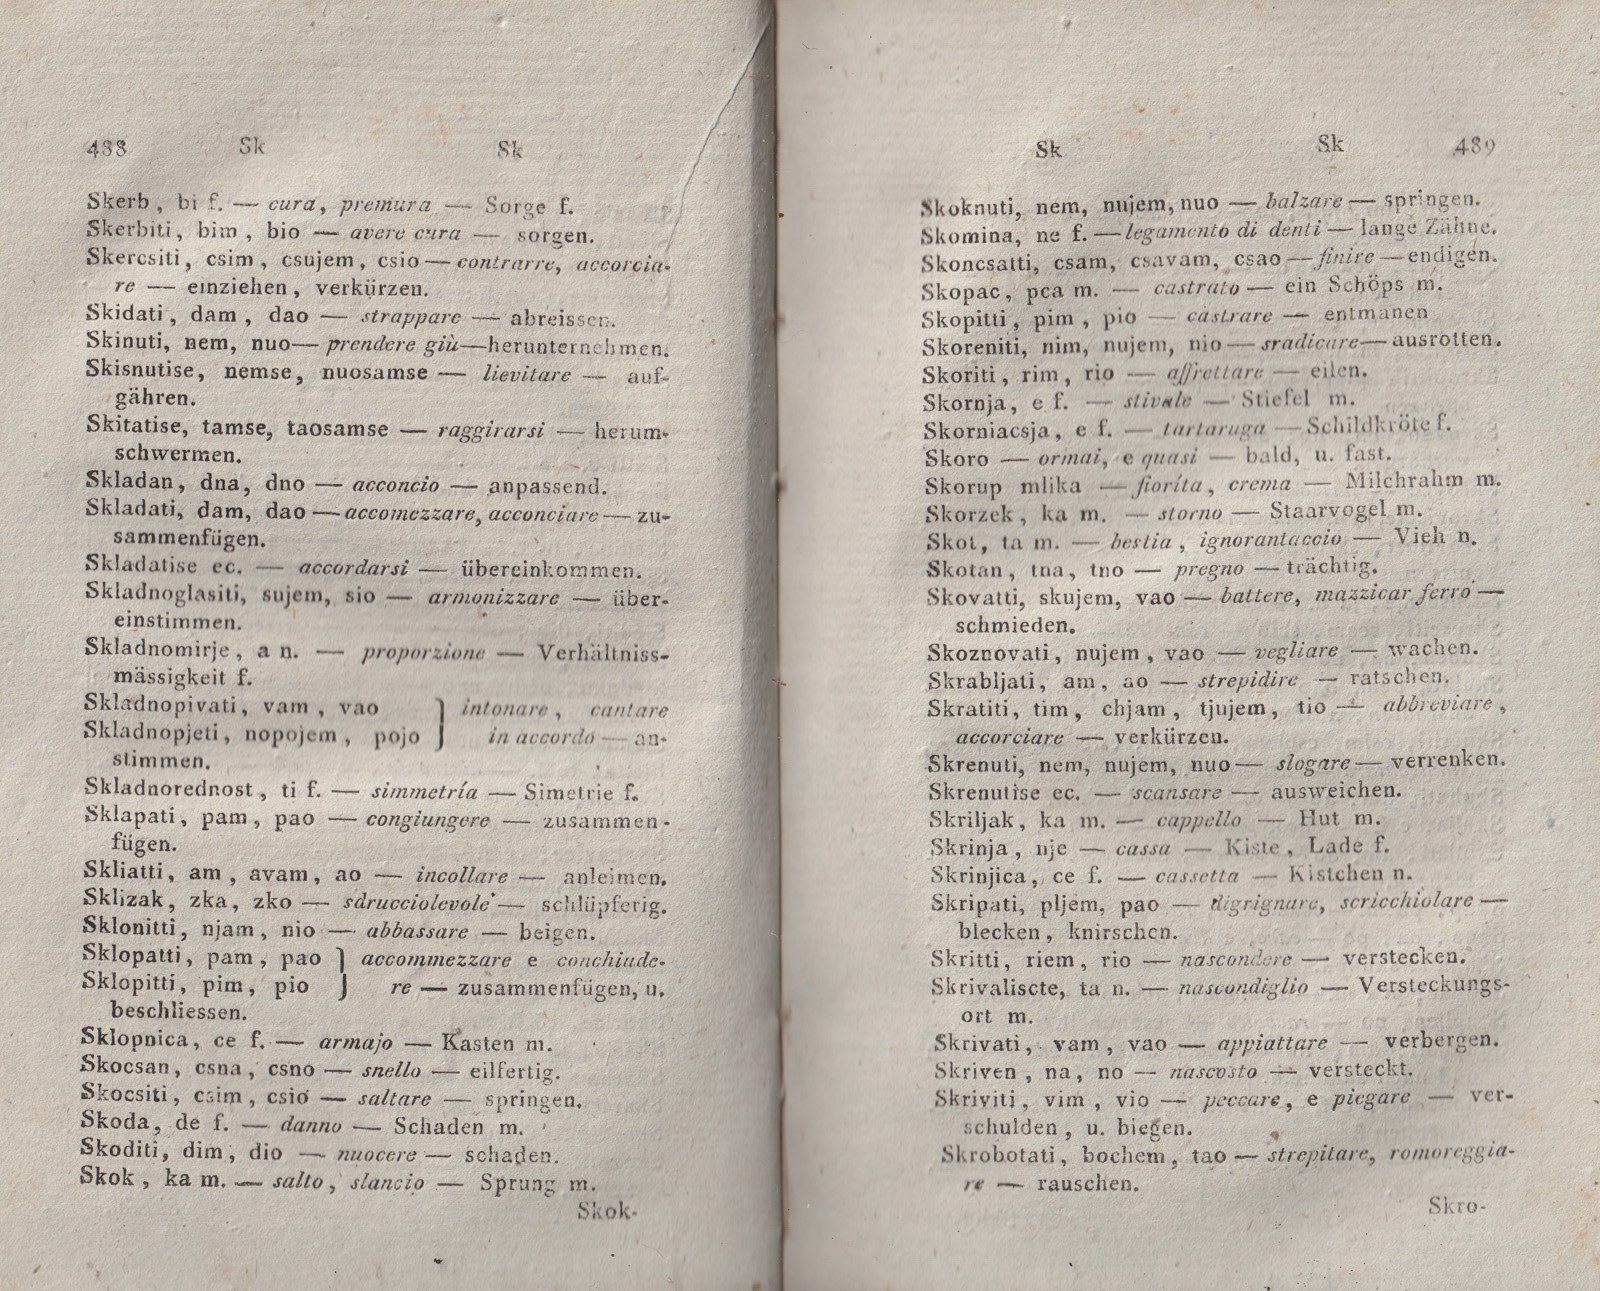 488 Sk Sk
Skerb , bi f. — cura, premura — Sorge f.
Skerbiti, bim , bio — avere cura — sorgen.
Skercsiti, csim , csujem, csio — contrarre, accorcia-
re — einziehen, verkürzen.
Skidati, dam , dao — strappare — abreissen.
Skinuti, nem, nuo— prendere giù—herunternehmen.
Skisnutise, nemse, nuosamse — lievitare — auf-
gähren.
Skitatise, tamse, taosamse — raggirarsi — herum-
schwermen.
Skladan, dna, dno — acconcio — anpassend.
Skladati, dam, dao —accomezzare, acconciare— zu-
sammenfügen.
Skladatise ec. — accordarsi — übereinkommen.
Skladnoglasiti, sujem, sio — armonizzare — über-
einstimmen.
Skladnomirje, a n. — proporzione — Verhältniss-
mässigkeit f.
Skladnopivati, vam , vao } intonare , cantare
Skladnopjeti, nopojem , pojo } in accordo — an-
stimmen.
Skladnorednost, ti f. — simmetría — Simetrie f.
Sklapati, pam, pao — congiungere — zusammen-
fügen.
Skliatti, am , avam, ao — incollare — anleimen.
Sklizak, zka, zko — sdrucciolevole — schlüpferig.
Sklonitti, njam, nio — abbassare — beigen.
Sklopatti, pam, pao } accommezzare e conchiude-
Sklopitti, pim, pio } re — zusammenfügen, u.
beschliessen.
Sklopnica, ce f. — armajo — Kasten m.
Skocsan, csna, csno — snello — eilfertig.
Skocsiti, csim, csio — saltare — springen.
Skoda, de f. — danno — Schaden m.
Skoditi, dim, dio — nuocere — schaden.
Skok , ka m. — salto, slancio — Sprung m.
Skok-
Sk Sk 489
Skoknuti, nem, nujem, nuo — balzare — springen.
Skomina, ne f. —legamento di denti— lange Zähne.
Skoncsatti, csam, csavam, csao —finire—endigen.
Skopac, pca m. — castrato — ein Schöps m.
Skopitti, pim, pio — castrare — entmanen
Skoreniti, nim, nujem, nio — sradicare— ausrotten.
Skoriti, rim, rio — affrettare — eilen.
Skornja, e f. — stivale — Stiefel m.
Skorniacsja, e f. — tartaruga — Schildkröte f.
Skoro — ormai, e quasi — bald, u. fast.
Skorup mlika — fioríta, crema — Milchrahm m.
Skorzek, ka m. — storno — Staarvogel m.
Skot, ta m. — bestia , ignorantaccio — Vieh n.
Skotan, tna, tno — pregno — trächtig.
Skovatti, skujem, vao — battere, mazzicar ferro —
schmieden.
Skoznovati, nujem, vao — vegliare — wachen.
Skrabljati, am, ao — strepidire — ratschen.
Skratiti, tim, chjam, tjujem, tio — abbreviare,
accorciare — verkürzen.
Skrenuti, nem, nujem, nuo — slogare — verrenken.
Skrenutise ec. — scansare — ausweichen.
Skriljak, ka m. — cappello — Hut m.
Skrinja, nje — cassa — Kiste, Lade f.
Skrinjica, ce f. — cassetta — Kistchen n.
Skripati, pljem, pao — digrignare, scricchiolare —
blecken, knirschen.
Skritti, riem, rio — nascondere — verstecken.
Skrivaliscte, ta n. — nascondiglio — Versteckungs-
ort m.
Skrivati, vam, vao — appiattare — verbergen.
Skriven, na, no — nascosto — versteckt.
Skriviti, vim, vio — peccare, e piegare — ver-
schulden, u. biegen.
Skrobotati, bochem, tao — strepitare, romoreggia-
re — rauschen.
Skro-